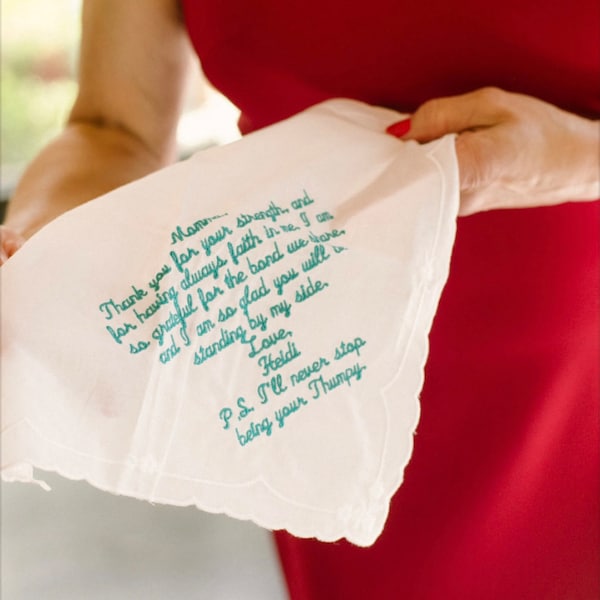 Momma,
Thank you for your strength, and
for having always faith in me. I am
so grateful for the bond we share,
and I am so glad you will be
standing by my side.
Love,
Heidi
P.S. I'll never stop
being your Thumpy.